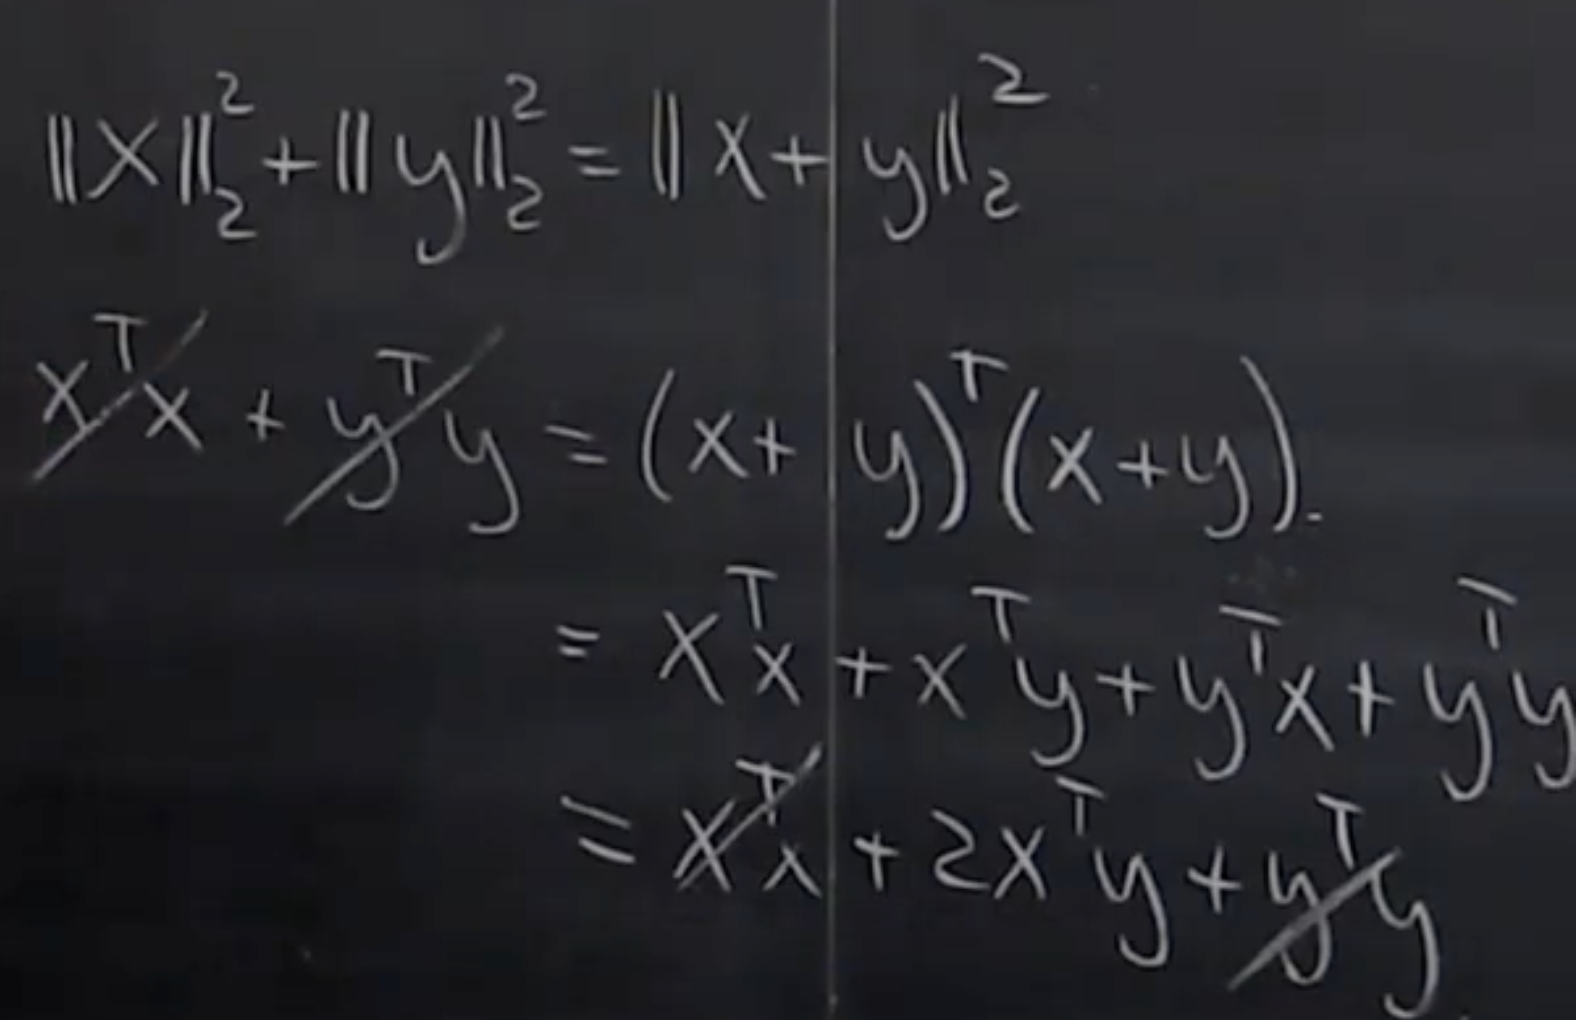 ‖x‖₂² + ‖y‖₂² = ‖x + y‖₂²
xᵀx + yᵀy = (x + y)ᵀ(x + y).
= xᵀx + xᵀy + yᵀx + yᵀy
= xᵀx + 2xᵀy + yᵀy